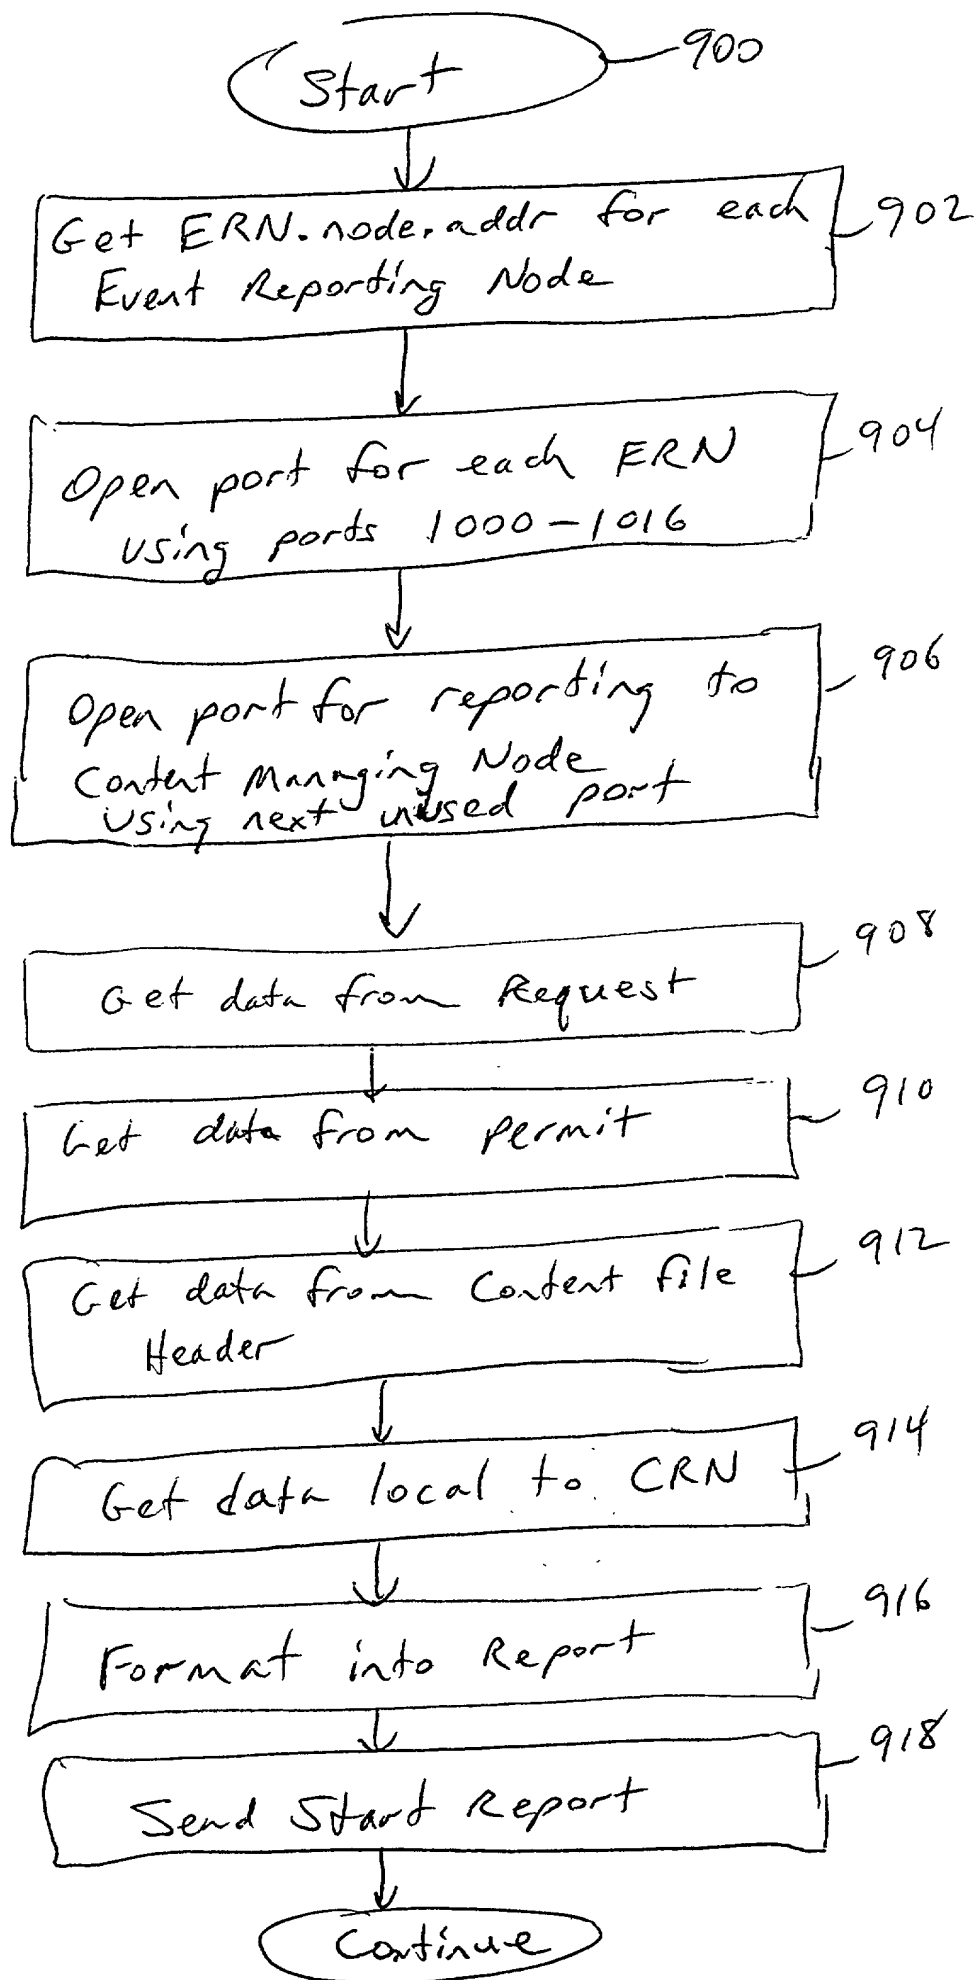 Start
900
Get ERN.node.addr for each
902
Event Reporting Node
Open port for each ERN
904
using ports 1000-1016
Open port for reporting to
906
Content Managing Node
using next unused port
Get data from Request
908
Get data from permit
910
Get data from Content File
912
Header
Get data local to CRN
914
Format into Report
916
Send Start Report
918
Continue